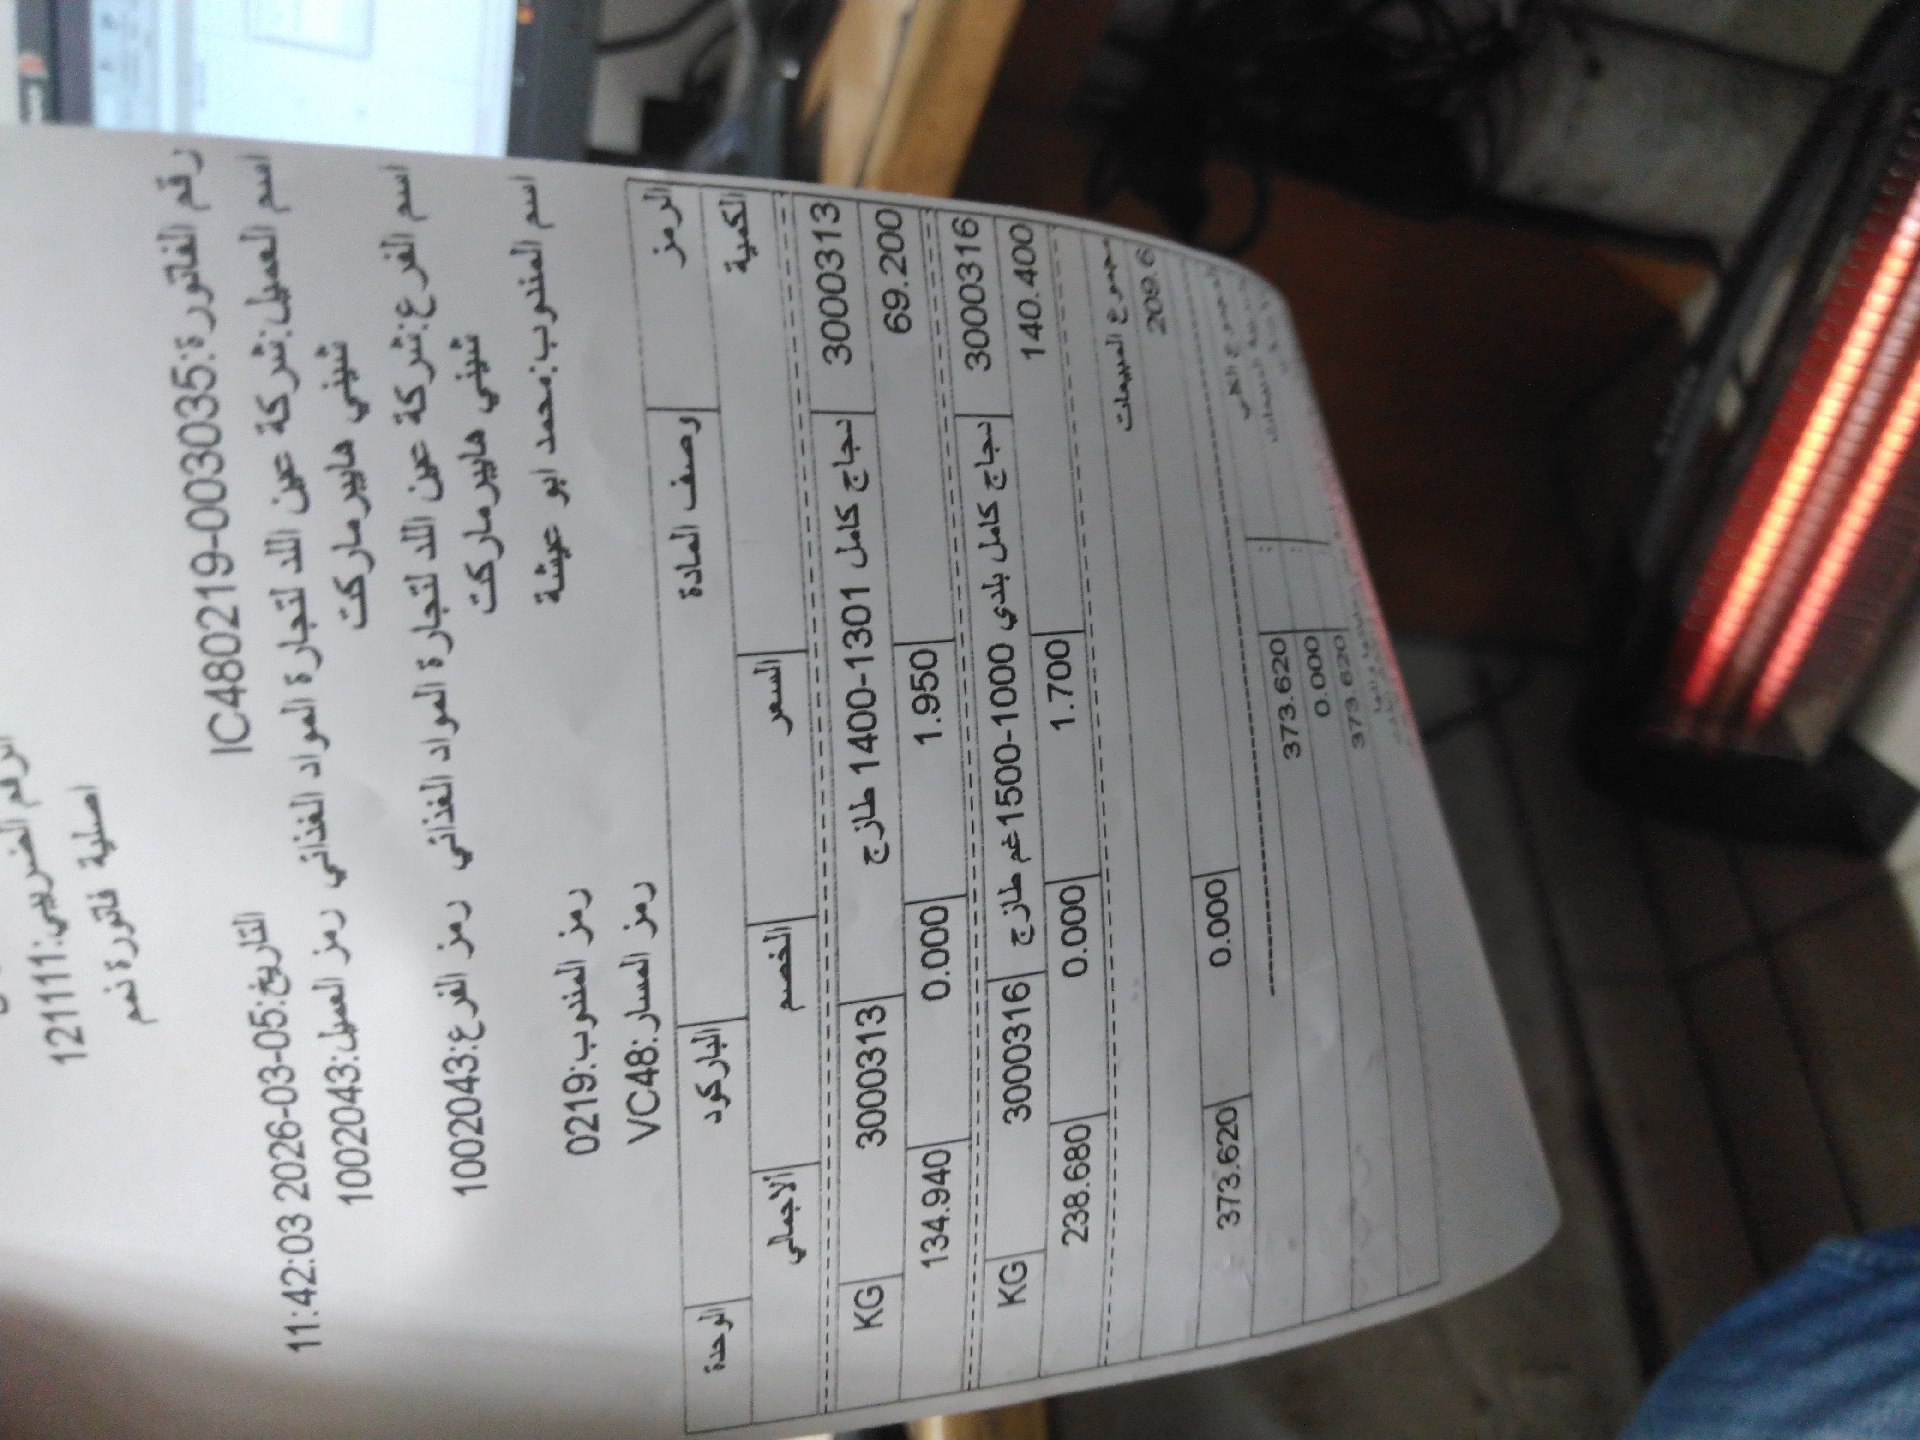 الرقم الضريبي:1211111
اصلية فاتورة نعم
رقم الفاتورة:IC480219-003035
التاريخ:05-03-2026 11:42:03
اسم العميل:شركة عين اللد لتجارة المواد الغذائي رمز العميل:1002043
ثيني هايبر ماركت
اسم الفرع:شركة عين اللد لتجارة المواد الغذائي رمز الفرع:1002043
ثيني هايبر ماركت
اسم المندوب:محمد ابو عيشة رمز المندوب:0219
رمز المسار:VC48
الرمز وصف المادة الباركود الوحدة
الكمية السعر الخصم الاجمالي
3000313 دجاج كامل 1301-1400 طازج 3000313 KG
69.200 1.950 0.000 134.940
3000316 دجاج كامل بلدي 1000-1500غم طازج 3000316 KG
140.400 1.700 0.000 238.680
مجموع المبيعات
209.6
0.000 373.620
373.620
0.000
373.620